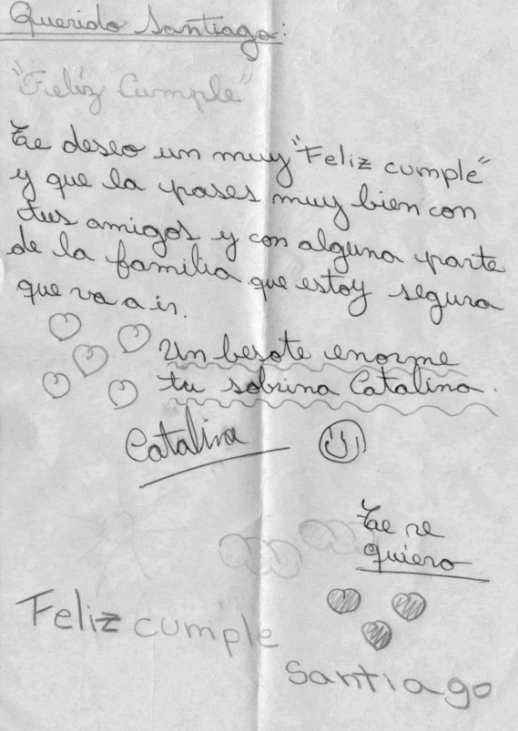 Querido Santiago:
"Feliz Cumple"
Te deseo un muy "Feliz cumple"
y que la pases muy bien con
tus amigos y con alguna parte
de la familia que estoy segura
que va a ir.
Un besote enorme
tu sobrina Catalina.
Catalina
Te re
quiero
Feliz cumple
Santiago